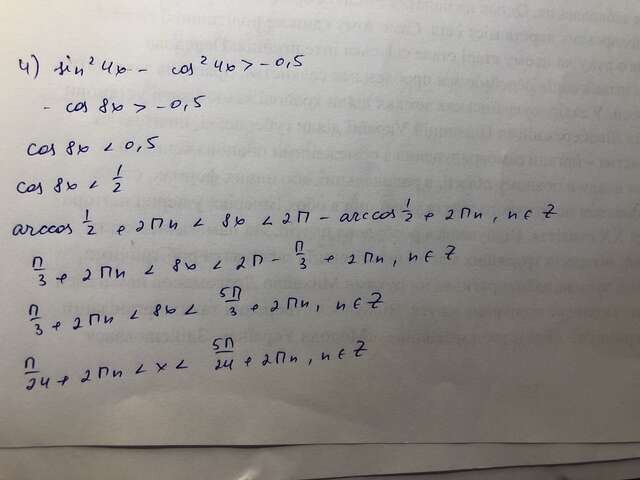 4) sin²4x - cos²4x > -0,5
- cos 8x > -0,5
cos 8x < 0,5
cos 8x < 1/2
arccos 1/2 + 2Пn < 8x < 2П - arccos 1/2 + 2Пn, n ∈ Z
П/3 + 2Пn < 8x < 2П - П/3 + 2Пn, n ∈ Z
П/3 + 2Пn < 8x < 5П/3 + 2Пn, n ∈ Z
П/24 + 2Пn < x < 5П/24 + 2Пn, n ∈ Z